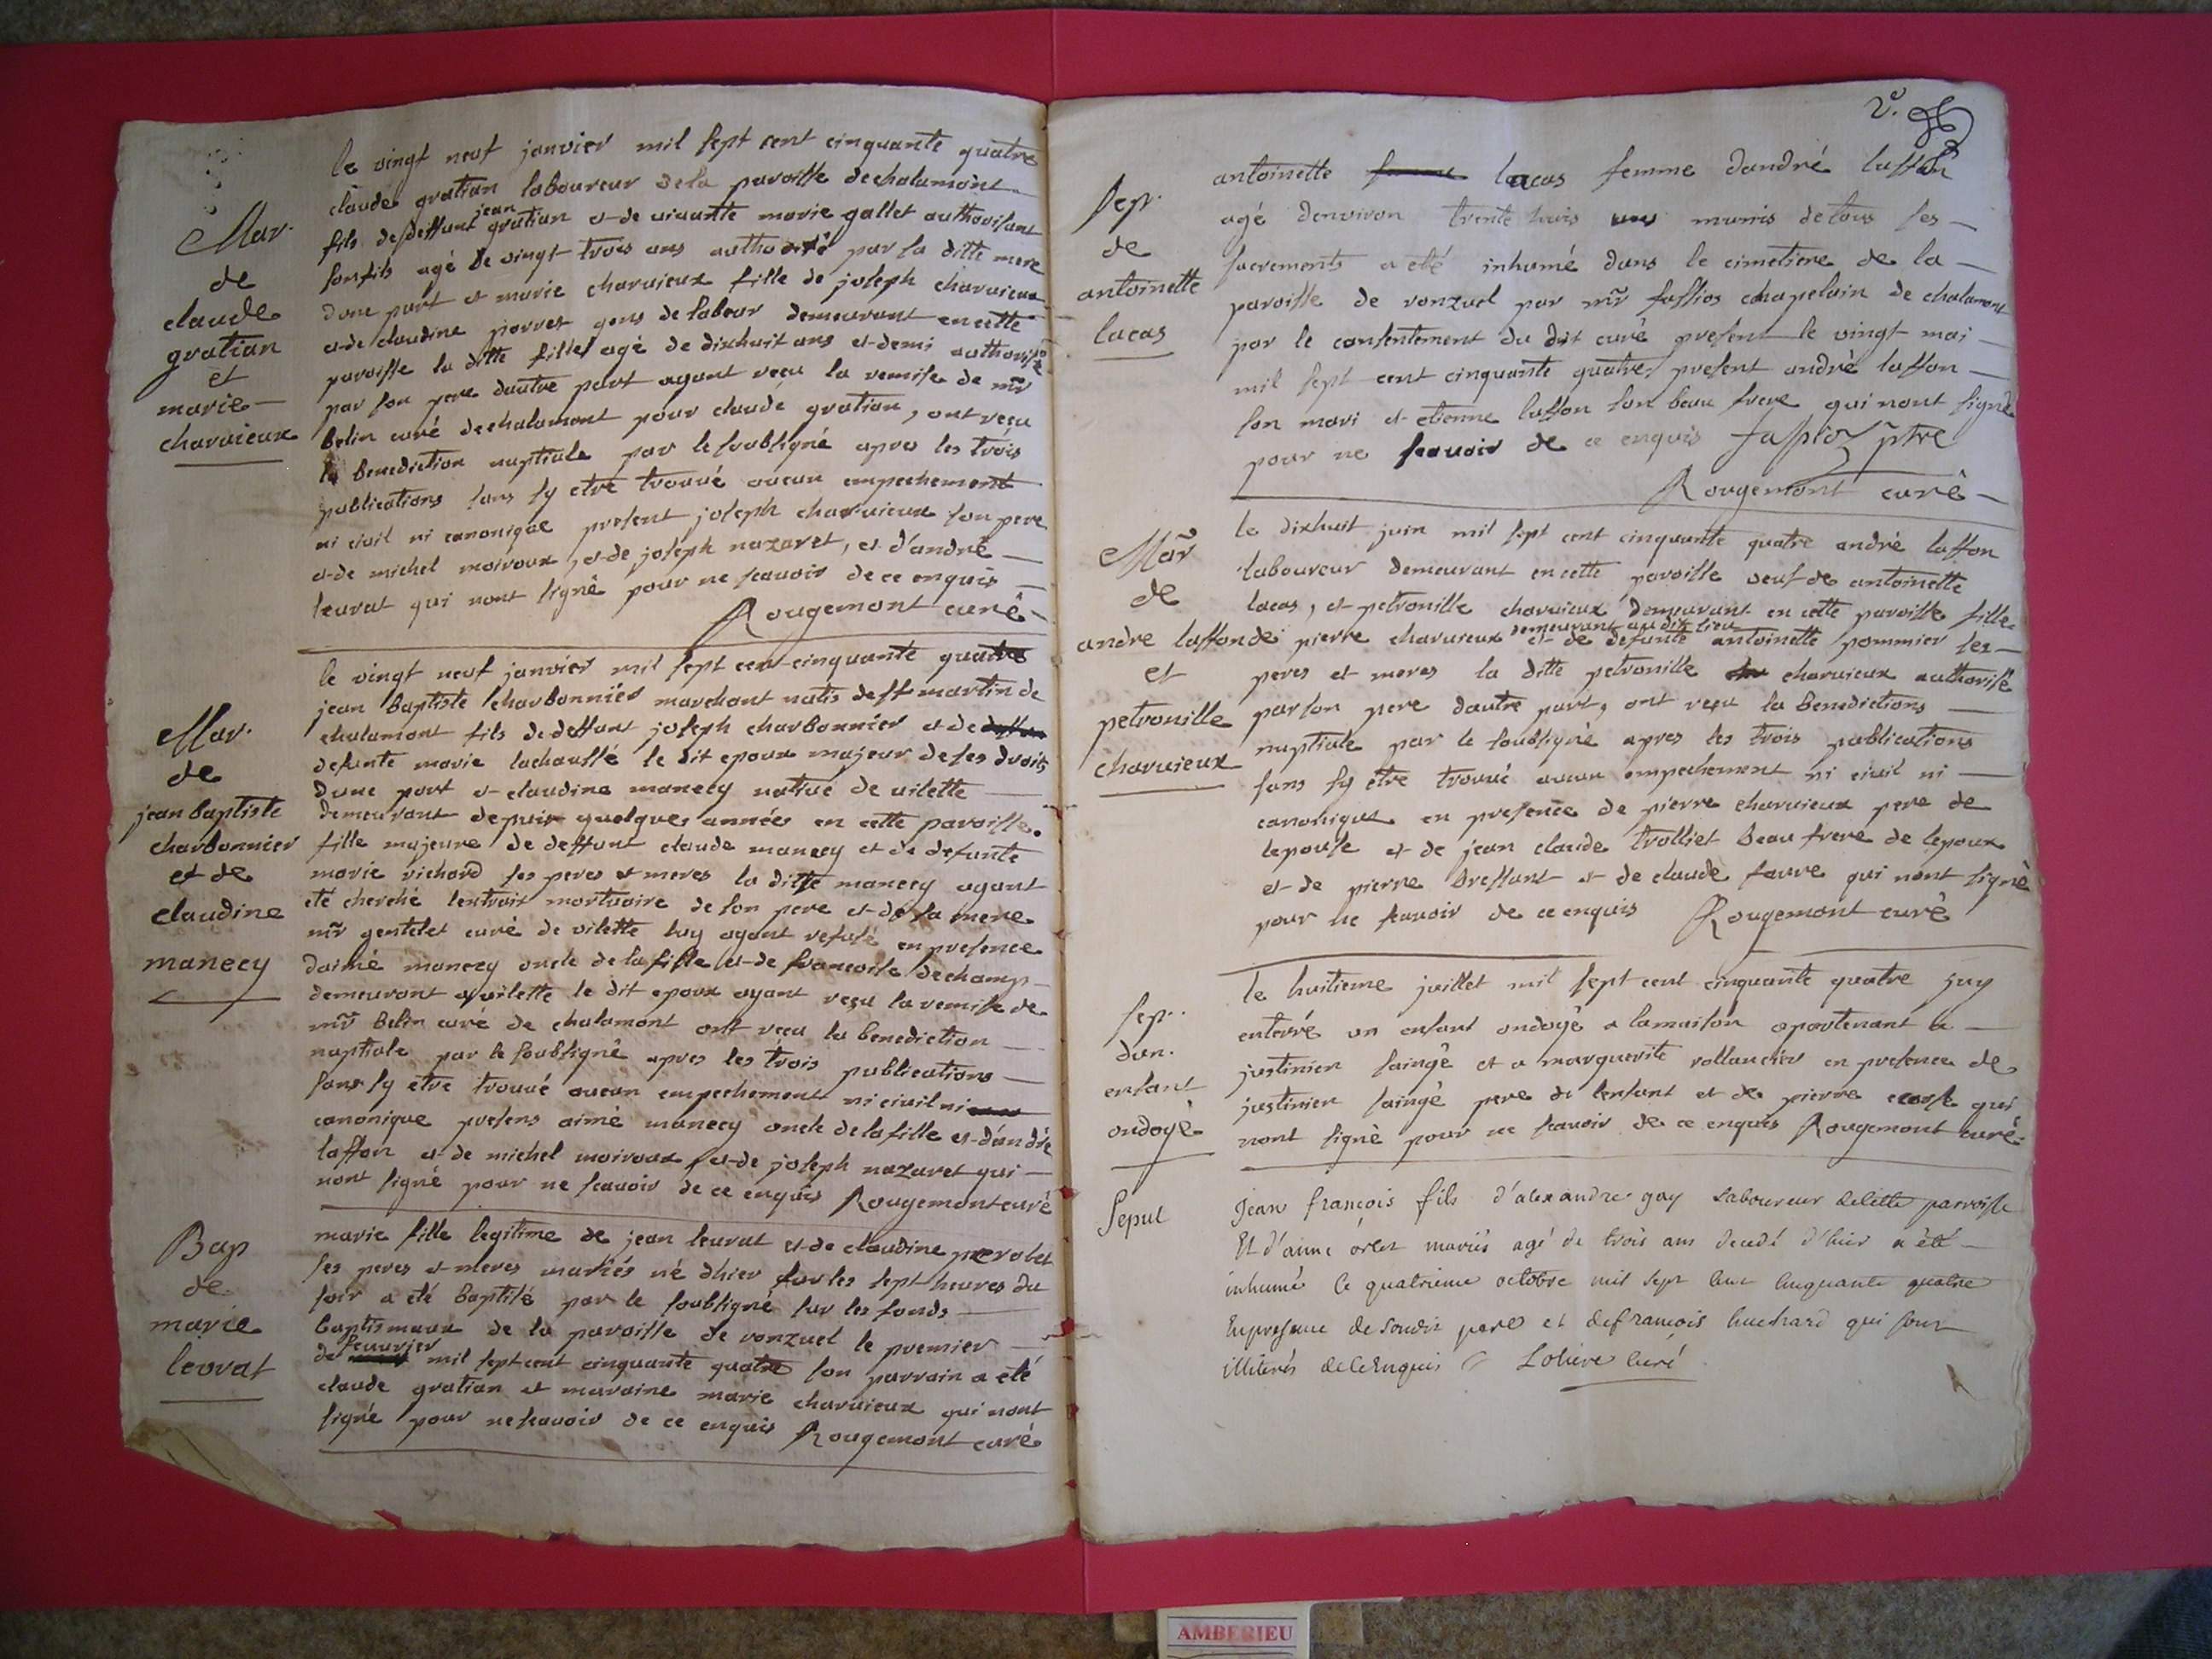 Mar.
de
claude
gratian
et
marie
charuieux
le vingt neuf janvier mil sept cent cinquante quatre
claude gratian laboureur de la paroisse de chalamont
fils de deffunt jean gratian et de uiuante marie gallet authorisant
son fils agé de vingt trois ans authorisé par sa ditte mere
dune part et marie charuieux fille de joseph charuieux
et de claudine pierres gens de labeur demeurant en cette
paroisse la ditte fille agé de dixhuit ans et demi authorisé
par son pere dautre part ayant reçu la remise de mr
belin curé de chalamont pour claude gratian, ont reçu
la benediction nuptiale par le soussigné apres les trois
publications sans sy etre trouué aucun empechement
ni ciuil ni canonique present joseph charuieux son pere
et de michel moiroux, et de joseph nazaret, et d'andré
leurat qui nont signé pour ne scauoir de ce enquis
Rougemont curé
Mar.
de
jean baptiste
charbonnier
et de
claudine
manecy
le vingt neuf janvier mil sept cent cinquante quatre
jean baptiste charbonnier marchant natif de st martin de
chalamont fils de deffunt joseph charbonnier et de
defunte marie lachaussé le dit epoux majeur de ses droits
dune part et claudine manecy natiue de uilette
demeurant depuis quelques années en cette paroisse
fille majeure de deffunt claude manecy et de defunte
marie richard ses peres et meres la ditte manecy ayant
eté cherché lentrait mortuaire de son pere et de sa mere
mr gentelet curé de vilette luy ayant refusé en presence
daimé manecy oncle de la fille et de francoise dechamp
demeurant a uilette le dit epoux ayant reçu la remise de
mr belin curé de chalamont ont reçu la benediction
nuptiale par le soubsigné apres les trois publications
sans sy etre trouué aucun empechement ni ciuil ni
canonique presens aimé manecy oncle de la fille et d'andré
lasson et de michel moiroux, et de joseph nazaret qui
nont signé pour ne scauoir de ce enquis Rougemont curé
Bap
de
marie
leorat
marie fille legitime de jean leurat et de claudine perolet
ses peres et meres mariés né dhier sur les sept heures du
soir a eté baptisé par le soubsigné sur les fonds
baptismaux de la paroisse de ronzuel le premier
de feurier mil sept cent cinquante quatre son parrain a eté
claude gratian et maraine marie charuieux qui nont
signé pour ne scauoir de ce enquis Rougemont curé
2e.
Sep.
de
antoinette
lacas
antoinette lacas femme dandré lasson
agé denviron trente huis ans munis de tous ses
sacrements a eté inhumé dans le cimetiere de la
paroisse de ronzuel par mr fassios chapelain de chalamont
par le consentement du dit curé present le vingt mai
mil sept cent cinquante quatre present andré lasson
son mari et etienne lasson son beau frere qui nont signé
pour ne scauoir de ce enquis fassioz ptre
Rougemont curé
Mar
de
andre lasson
et
petronille
charuieux
le dixhuit juin mil sept cent cinquante quatre andré lasson
laboureur demeurant en cette paroisse veuf de antoinette
lacas, et petronille charuieux demeurant en cette paroisse fille
de pierre charuieux demeurant au dit lieu et de defunte antoinette pommier ses
peres et meres la ditte petronille charuieux authorisé
par son pere dautre part, ont reçu la benedictions
nuptiale par le soubsigné apres les trois publications
sans sy etre trouué aucun empechement ni ciuil ni
canonique en presence de pierre charuieux pere de
lepouse et de jean claude trolliet beau frere de lepoux
et de pierre bressant et de claude faure qui nont signé
pour ne scauoir de ce enquis Rougemont curé
Sep.
dun
enfant
ondoyé
le huitieme juillet mil sept cent cinquante quatre jay
enterré un enfant ondoyé a lamaison apartenant a
justinien saingé et a marguerite rollancier en presence de
justinien saingé pere de lenfant et de pierre qui
nont signé pour ne scauoir de ce enquis Rougemont curé
Sepul
Jean françois fils d'alexandre gay Laboureur de cette parroisse
Et d'aime mariés agé de trois ans decedé d'hier a été
inhumé le quatrieme octobre mil sept cent cinquante quatre
En presence de soudit pere et de francois huchard qui sont
illiterés de ce Enquis curé
AMBERIEU